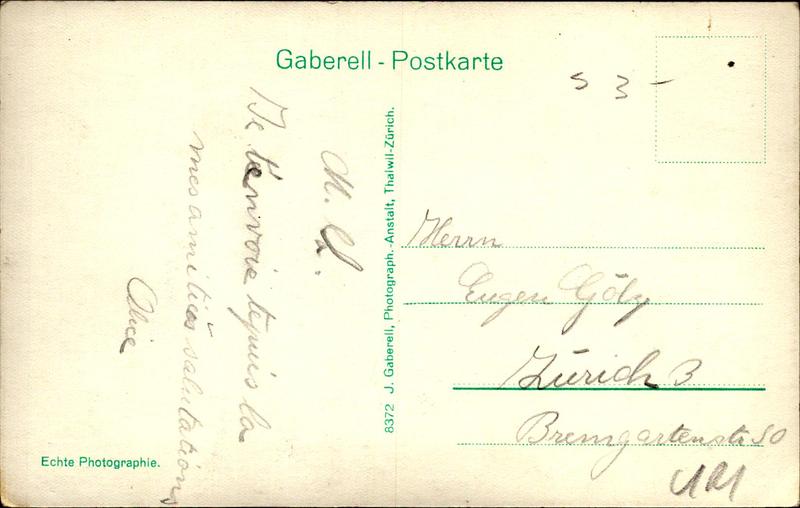 Gaberell - Postkarte
53-
M. A.
Je t'envoie depuis la
mes amitiés salutations
Alice
8372 J. Gaberell, Photograph.-Anstalt, Thalwil-Zürich.
Herrn
Eugen
Zürich 3
Bremgartenstr 50
Echte Photographie.